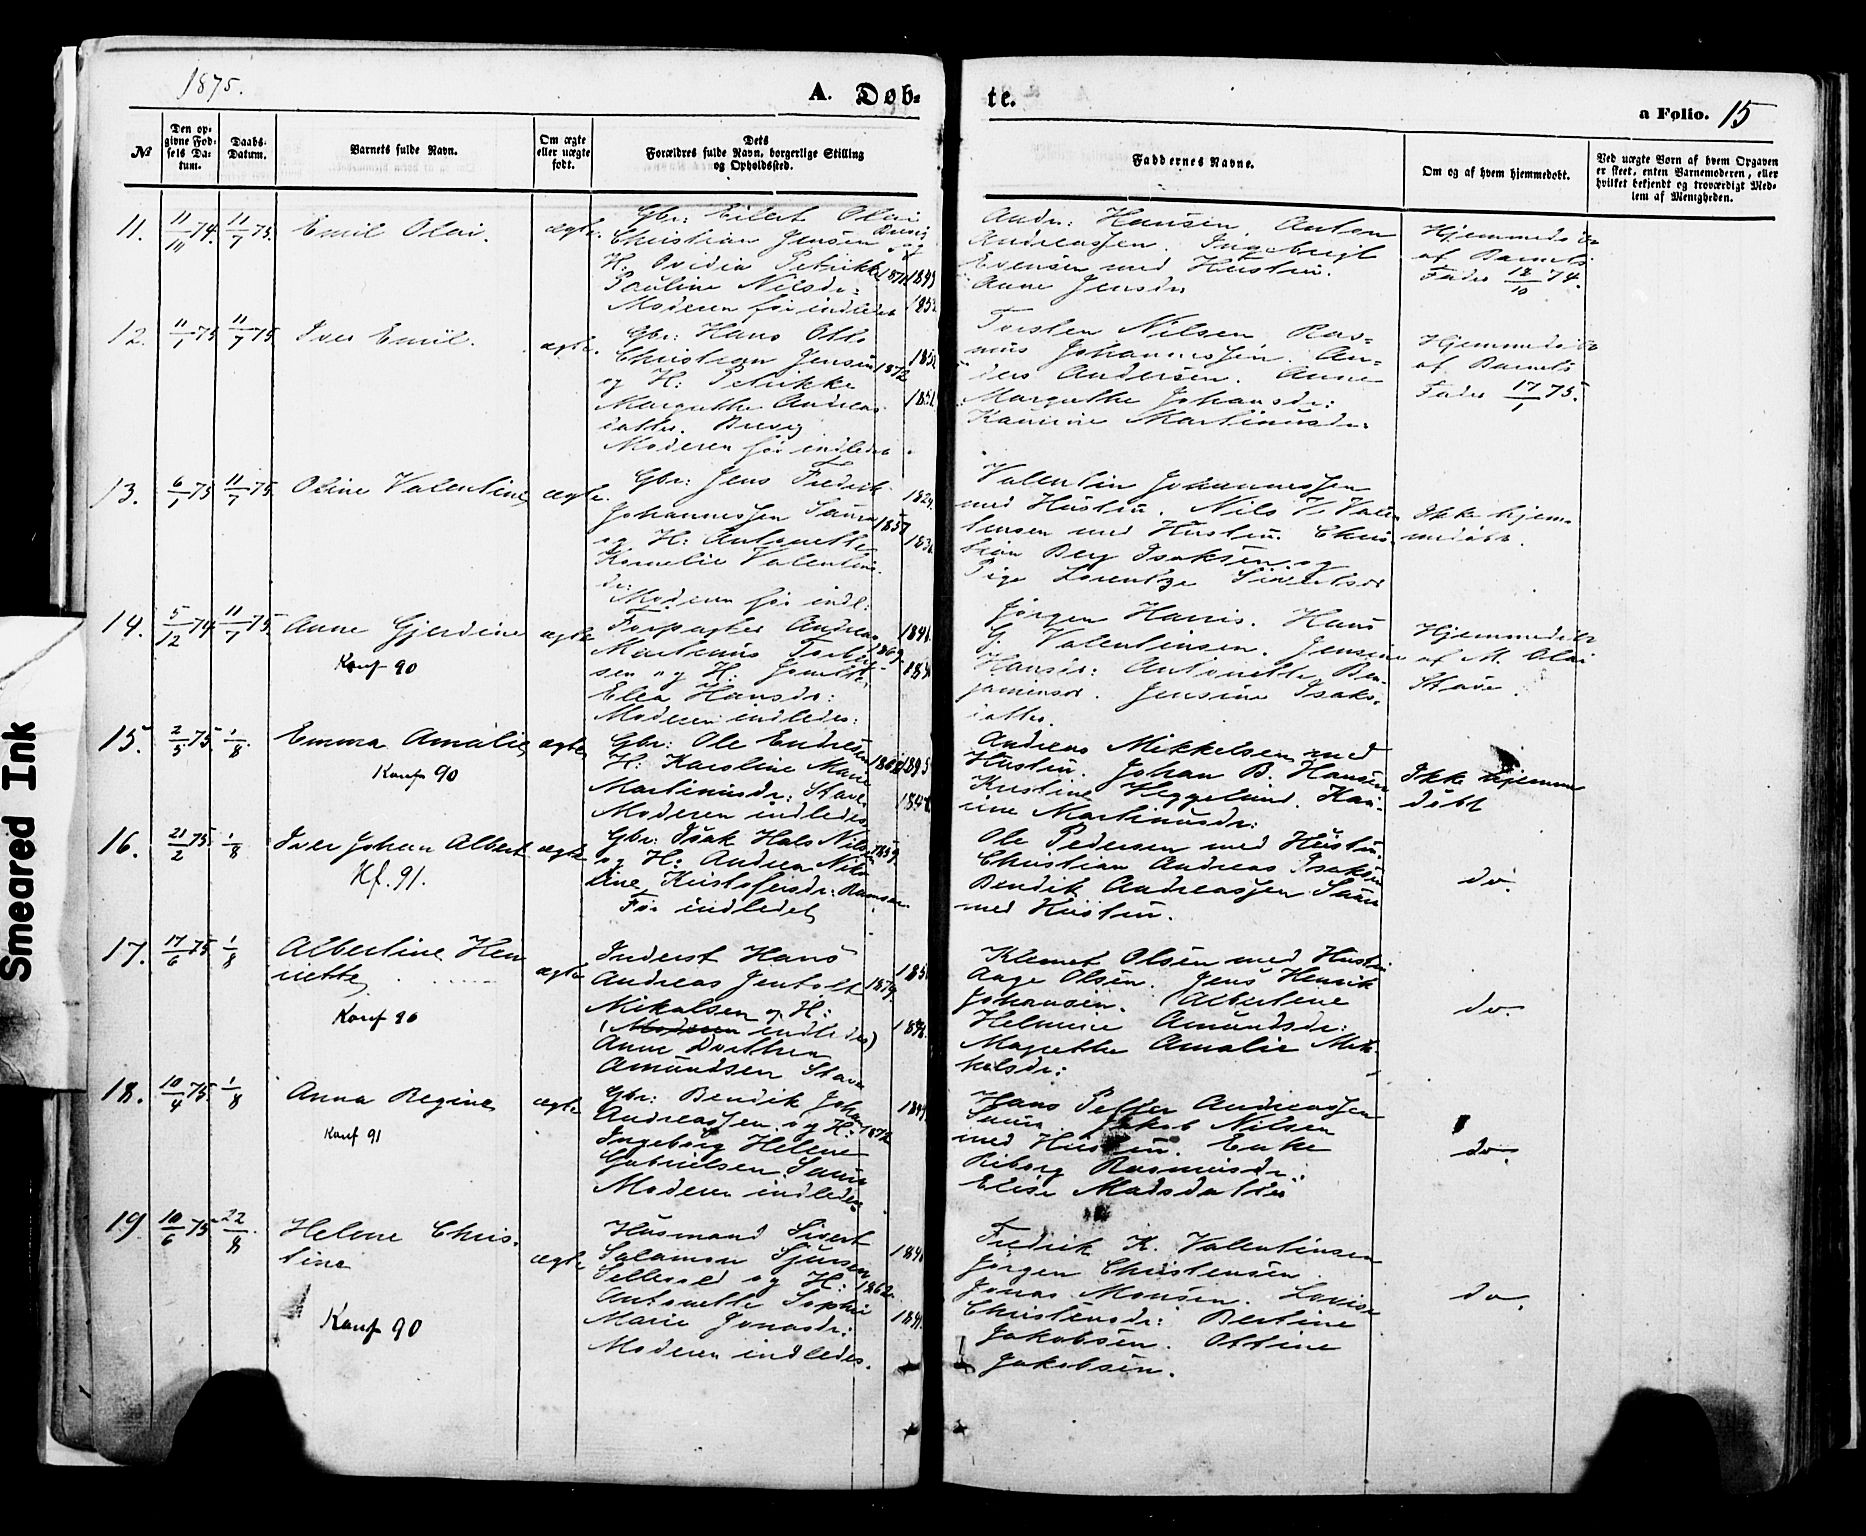 1875.
A. Døb-
te.
a Folio. 15
№
Den op-
givne Fød-
sels Da-
tum.
Daabs-
Datum.
Barnets fulde Navn.
Om ægte
eller uægte
født.
Dets
Forældres fulde Navn, borgerlige Stilling
og Opholdssted.
Faddernes Navne.
Om og af hvem hjemmedøbt.
Ved uægte Børn af hvem Opgaven
er skeet, enten Barnemoderen, eller
hvilket bekjendt og troværdigt Med-
lem af Menigheden.
11. 11/7 75. Emil Olai. ægte.
Gbr: Eilert Olai
Christian Jensen og
H: Ovidia Petrikke
Pauline Nilsdr:
Moderen før indledet
Andr: Hansen. Anton
Andreassen. Ingebrigt
Evensen med Hustru.
Anne Jensdr
Hjemmedøbt
af Barnets
Fader 74.
12. 11/1 75 11/7 75. Iver Emil. ægte.
Gbr: Hans Otto
Christian Jensen 1872
og H: Petrikke
Margrethe Andreas
datter.
Moderen før indledet
Torsten Nilsen. Ras-
mus Johannessen. An-
ders Andersen. Anne
Margrethe Johansdr:
Martinusdr.
Hjemmedøbt
af Barnets
Fader 17/1 75.
13. 6/1 75 11/7 75. Oline Valentine ægte.
Gbr: Jens Fredrik
Johannessen Saura
og H: Antonette
Kornelie Valentins
dr:
Moderen før indl:
Valentin Johannessen
med Hustru. Nils V. Valen
tinsen med Hustru. Chris-
tian Berg Isaksen og
Pige Lorentze Sivertsdr
Ikke hjem-
medøbt.
14. 5/12 74 11/7 75. Anne Gjerdine ægte
Konf 90
Forpagter Andreas
Martinus
sen og H:
Elea Hansdr:
Moderen indledes:
Jørgen Hansen. Hans
G. Valentinsen. Jensine
Hansdr: Antonette Ben-
jaminsdr. Jensine Isaks-
datter.
Hjemmedøbt
af M. Olai
Stave.
15. 2/5 75 1/8. Emma Amalie ægte
Konf 90
Gbr: Ole Endresen
H: Karoline Marie
Martinusdr: Stave
Moderen indledes
Andreas Mikkelsen med
Hustru. Johan B. Hansen
Kristine Heggelund.
Martinusdr:
Ikke hjemme
døbt
16. 21/2 75 1/8 Iver Johan Albert ægte
Kf. 91.
Gbr: Isak Hals Nilsen
og H: Andrea Niko
line Kristofersdr: Ramsø
Før indledet
Ole Pedersen med Hustru.
Christian Andreas Isaksen
Bendik Andreassen Saura
med Hustru.
do.
17. 17/6 75 1/8 Albertine Hen
riette ægte
Konf 90
Inderst Hans
Andreas Jentoft
Nikolsen og H:
(Moderen indledes)
Anne Dorthea
Amundsen Stave
Klemet Olsen med Hustru
Aage Olsen. Jens Henrik
Johansen. Albertine
Helmine Amundsdr:
Magrethe Amalie Mik-
kelsdr:
do.
18. 10/4 75 1/8 Anna Regine ægte
Konf 91
Gbr: Bendik Johan
Andreassen. og H: 1872
Ingeborg Helene
Gabrielsen Saura
Moderen indledes
Hans Petter Andreassen
Saura. Jakob Nilsen
med Hustru. Enke
Riborg Rasmusdr:
Elise Madsdatter
do.
19 10/6 75 22/8. Helene Chris-
tine ægte
Konf 90
Husmand Sivert
Salamon Sjursen
og H: 1862.
Antonette Sophie
Marie Jonasdr:
Moderen indledes.
Fredrik K. Valentinsen
Jørgen Christensen.
Jonas Monsen. Lovise
Christensdr: Bertine
Jakobsen. Ottine
Jakobsen.
do.
Smeared Ink